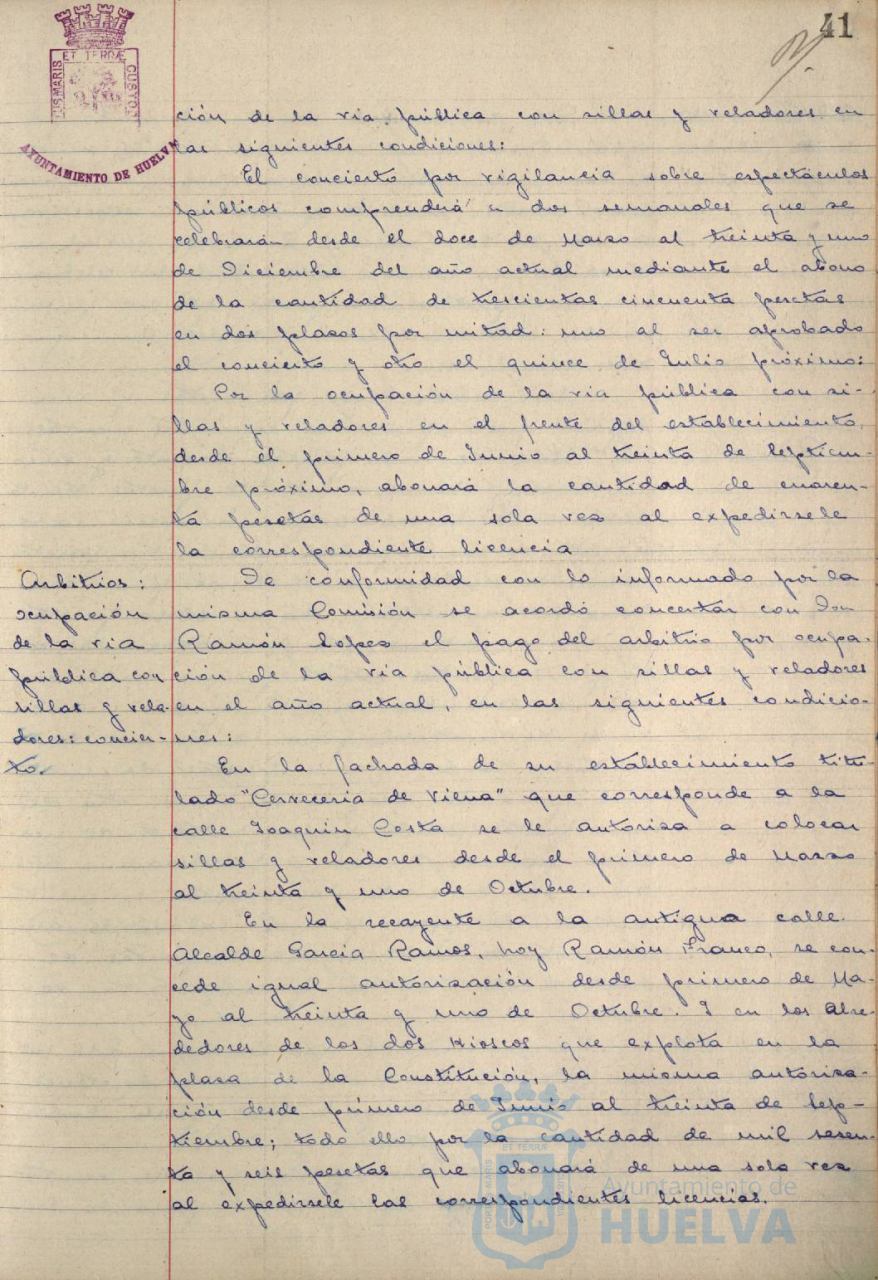 41
ET TERRÆ
CUSTOS
AYUNTAMIENTO DE HUELVA
ción de la via pública con sillas y veladores en
las siguientes condiciones:
El concierto por vigilancia sobre espectáculos
públicos comprenderá a dos semanales que se
celebrarán desde el doce de Marzo al treinta y uno
de Diciembre del año actual mediante el abono
de la cantidad de trescientas cincuenta pesetas
en dos plazos por mitad: uno al ser aprobado
el concierto y otro el quince de Julio próximo:
Por la ocupación de la via pública con si-
llas y veladores en el frente del establecimiento,
desde el primero de Junio al treinta de Septiem-
bre próximo, abonará la cantidad de cuaren-
ta pesetas de una sola vez al expedirsele
la correspondiente licencia
Arbitrios:
ocupación
de la via
pública con
sillas y vela-
dores: concier-
to.
De conformidad con lo informado por la
misma Comisión se acordó concertar con Don
Ramón Lopez el pago del arbitrio por ocupa-
ción de la via pública con sillas y veladores
en el año actual, en las siguientes condicio-
nes:
En la fachada de su establecimiento titu-
lado "Cerveceria de Viena" que corresponde a la
calle Joaquin Costa se le autoriza a colocar
sillas y veladores desde el primero de Marzo
al treinta y uno de Octubre.
En la recayente a la antigua calle
Alcalde Garcia Ramos, hoy Ramón Franco, se con-
cede igual autorización desde primero de Ma-
yo al treinta y uno de Octubre. Y en los alre-
dedores de los dos Kioscos que explota en la
plaza de la Constitución, la misma autoriza-
ción desde primero de Junio al treinta de Sep-
tiembre; todo ello por la cantidad de mil sesen-
ta y seis pesetas que abonará de una sola vez
al expedirsele las correspondientes licencias.
Ayuntamiento de
HUELVA